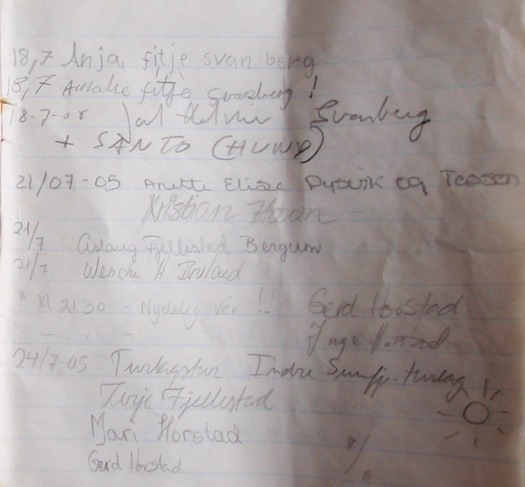 18,7 Anja fitje svanberg
18,7 Amalie fitje svanberg !
18-7-05 Svanberg
+ SANTO (HUND)
21/07-05 Anette Elise Dysvik og Tassen
Kristian
21/7 Aslaug Fjellestad Bergum
21/7 Wenche H.
" Kl. 2130 - Nydelig vér !! Gerd Horstad
Inge Horstad
24/7-05 Indre
Terje Fjellestad
Mari Horstad
Gerd Horstad